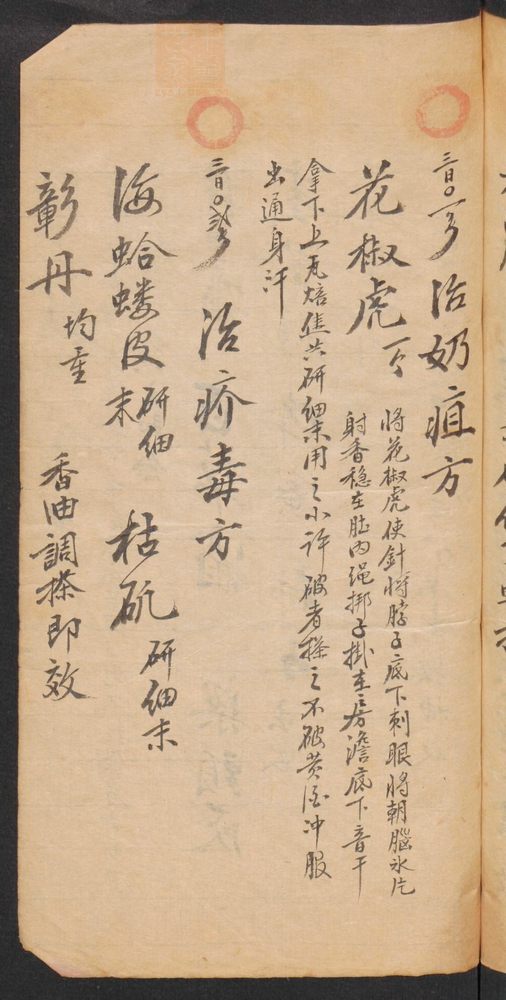 治奶疽方
花椒虎
將花椒虎使針將脖子底下刺眼將朝腦氷片
射香穏在肚内绳挷子掛在房簷底下音干
拿下上瓦焙焦共研细末用之小许破者搽之不破黄酒冲服
出通身汗
治疥毒方
海蛤蜧皮 研细末 枯矾 研细末
彰丹 均重 香油調搽即效